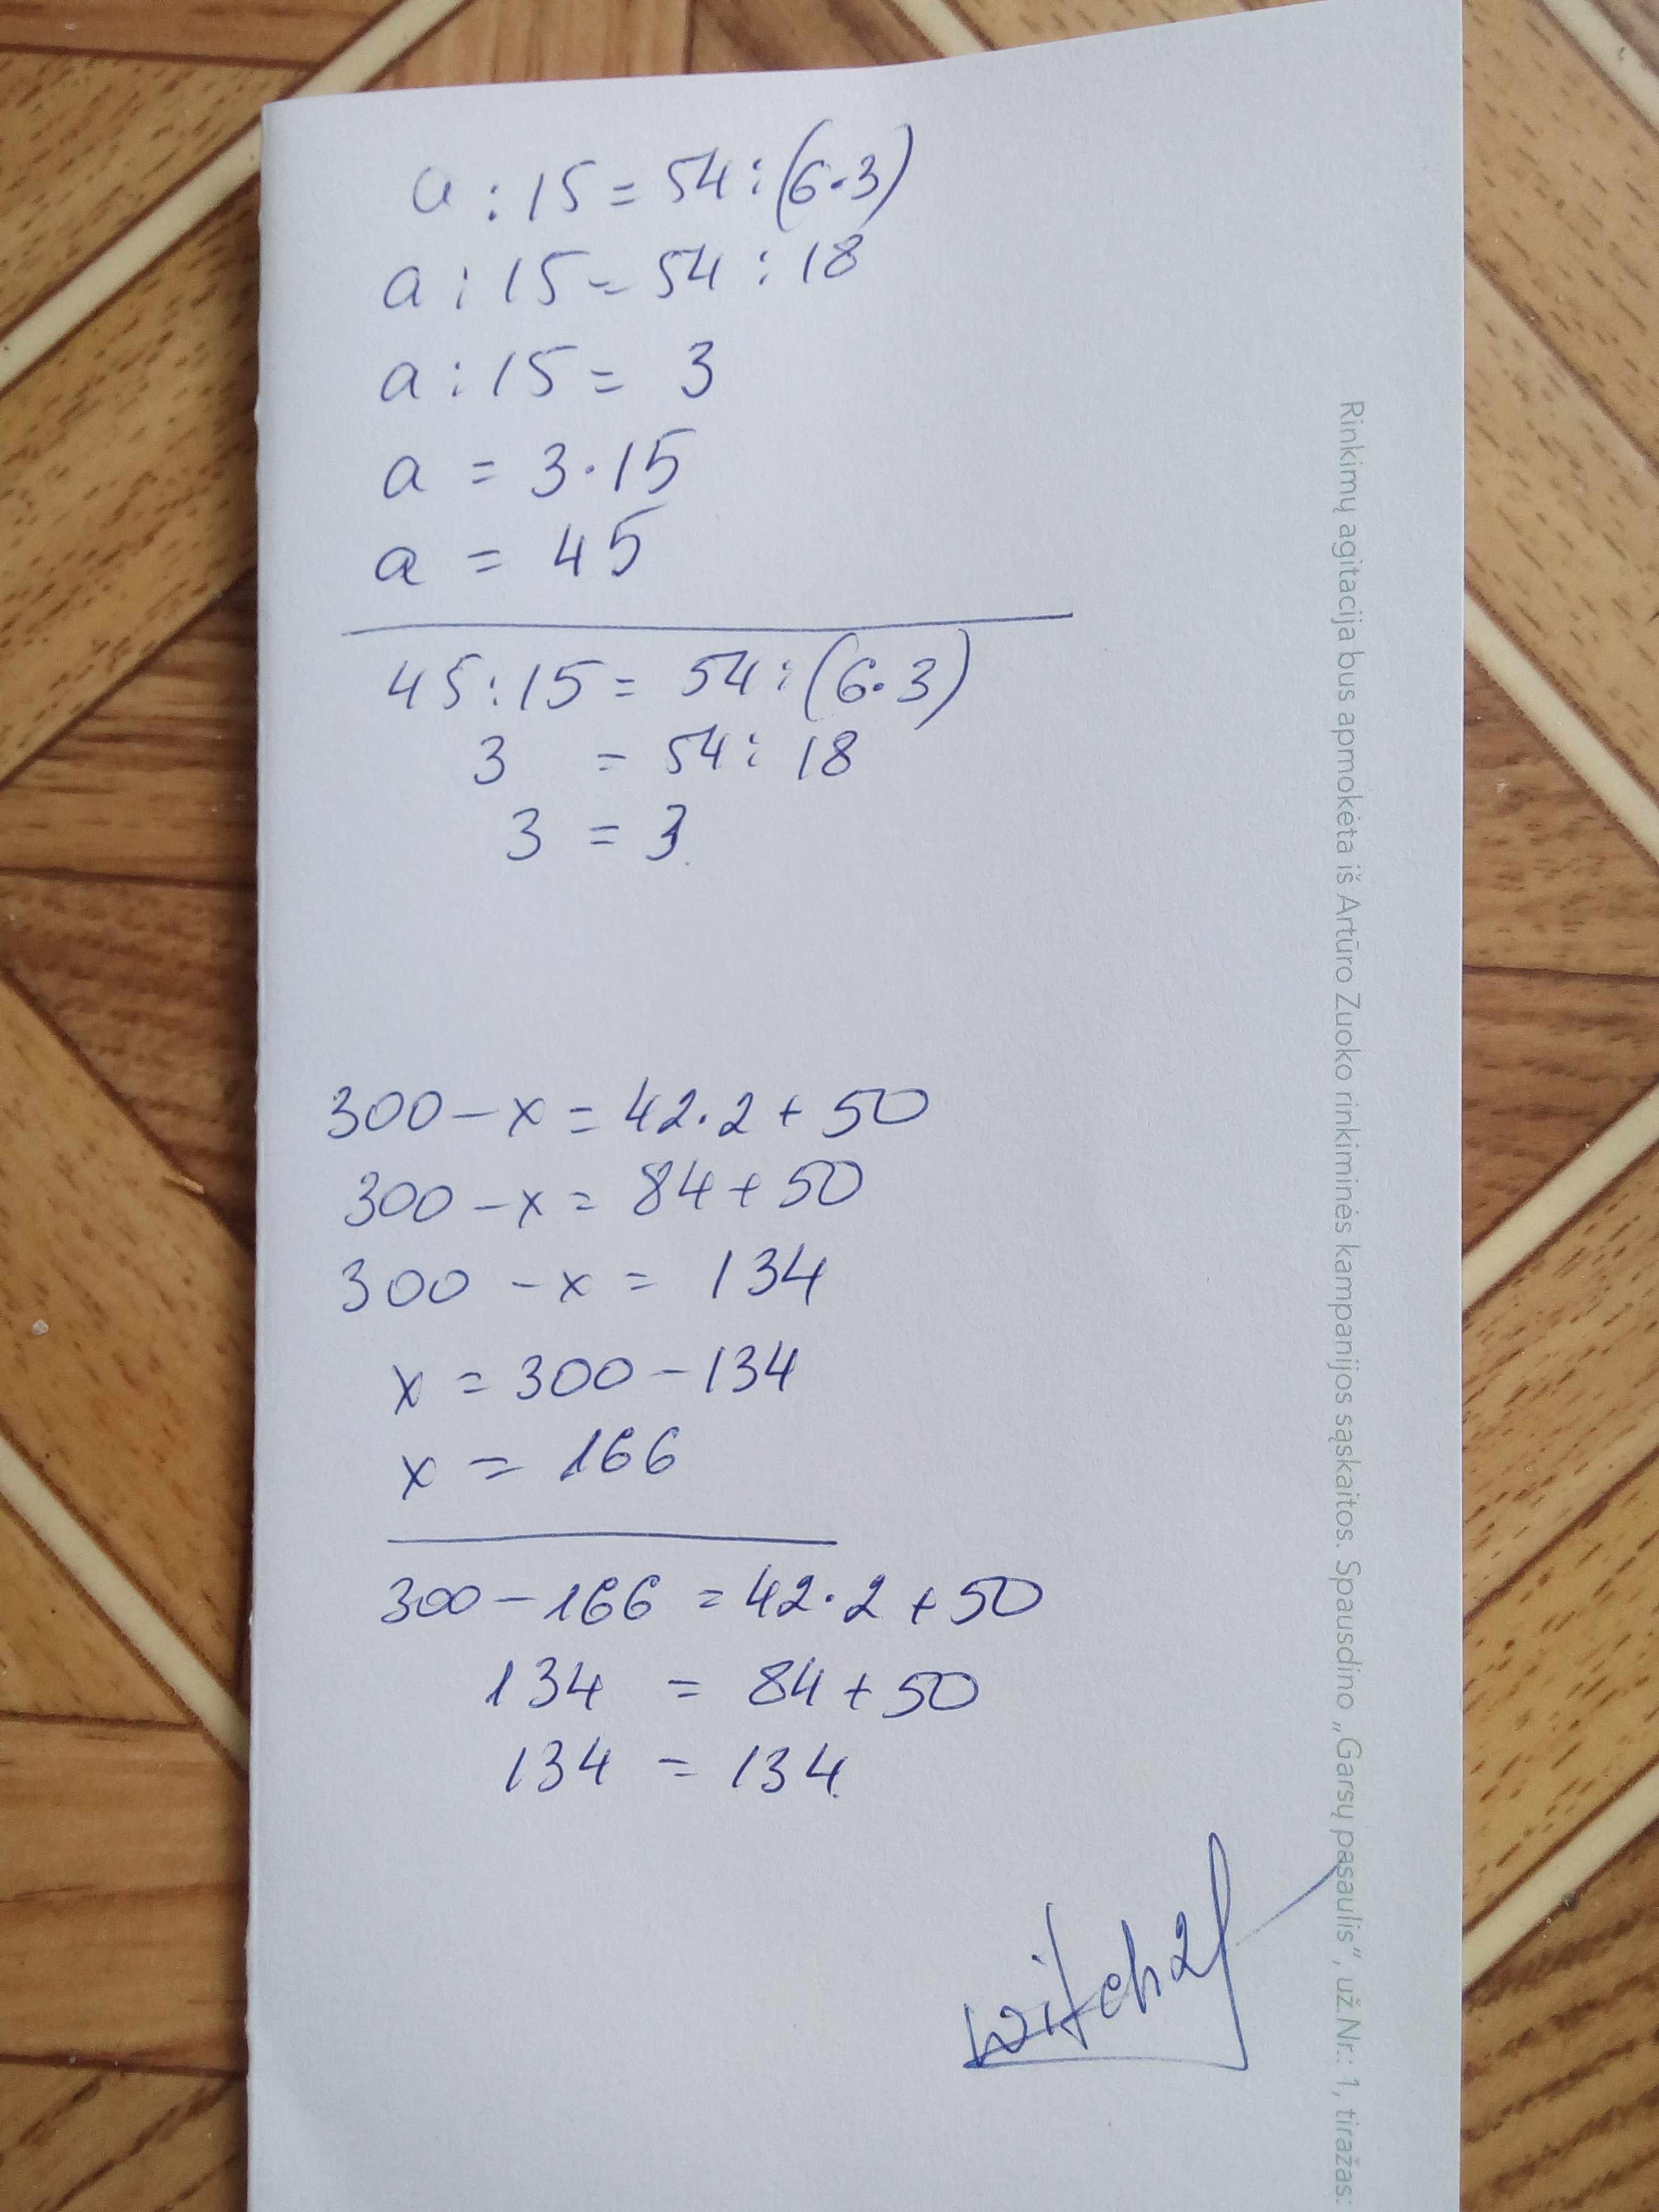 a : 15 = 54 : (6·3)
a : 15 = 54 : 18
a : 15 = 3
a = 3·15
a = 45
45 : 15 = 54 : (6·3)
3 = 54 : 18
3 = 3.
300 - x = 42·2 + 50
300 - x = 84 + 50
300 - x = 134
x = 300 - 134
x = 166
300 - 166 = 42·2 + 50
134 = 84 + 50
134 = 134.
witch21
Rinkimų agitacija bus apmokėta iš Artūro Zuoko rinkiminės kampanijos sąskaitos. Spausdino „Garsų pasaulis“, už.Nr.: 1, tiražas: